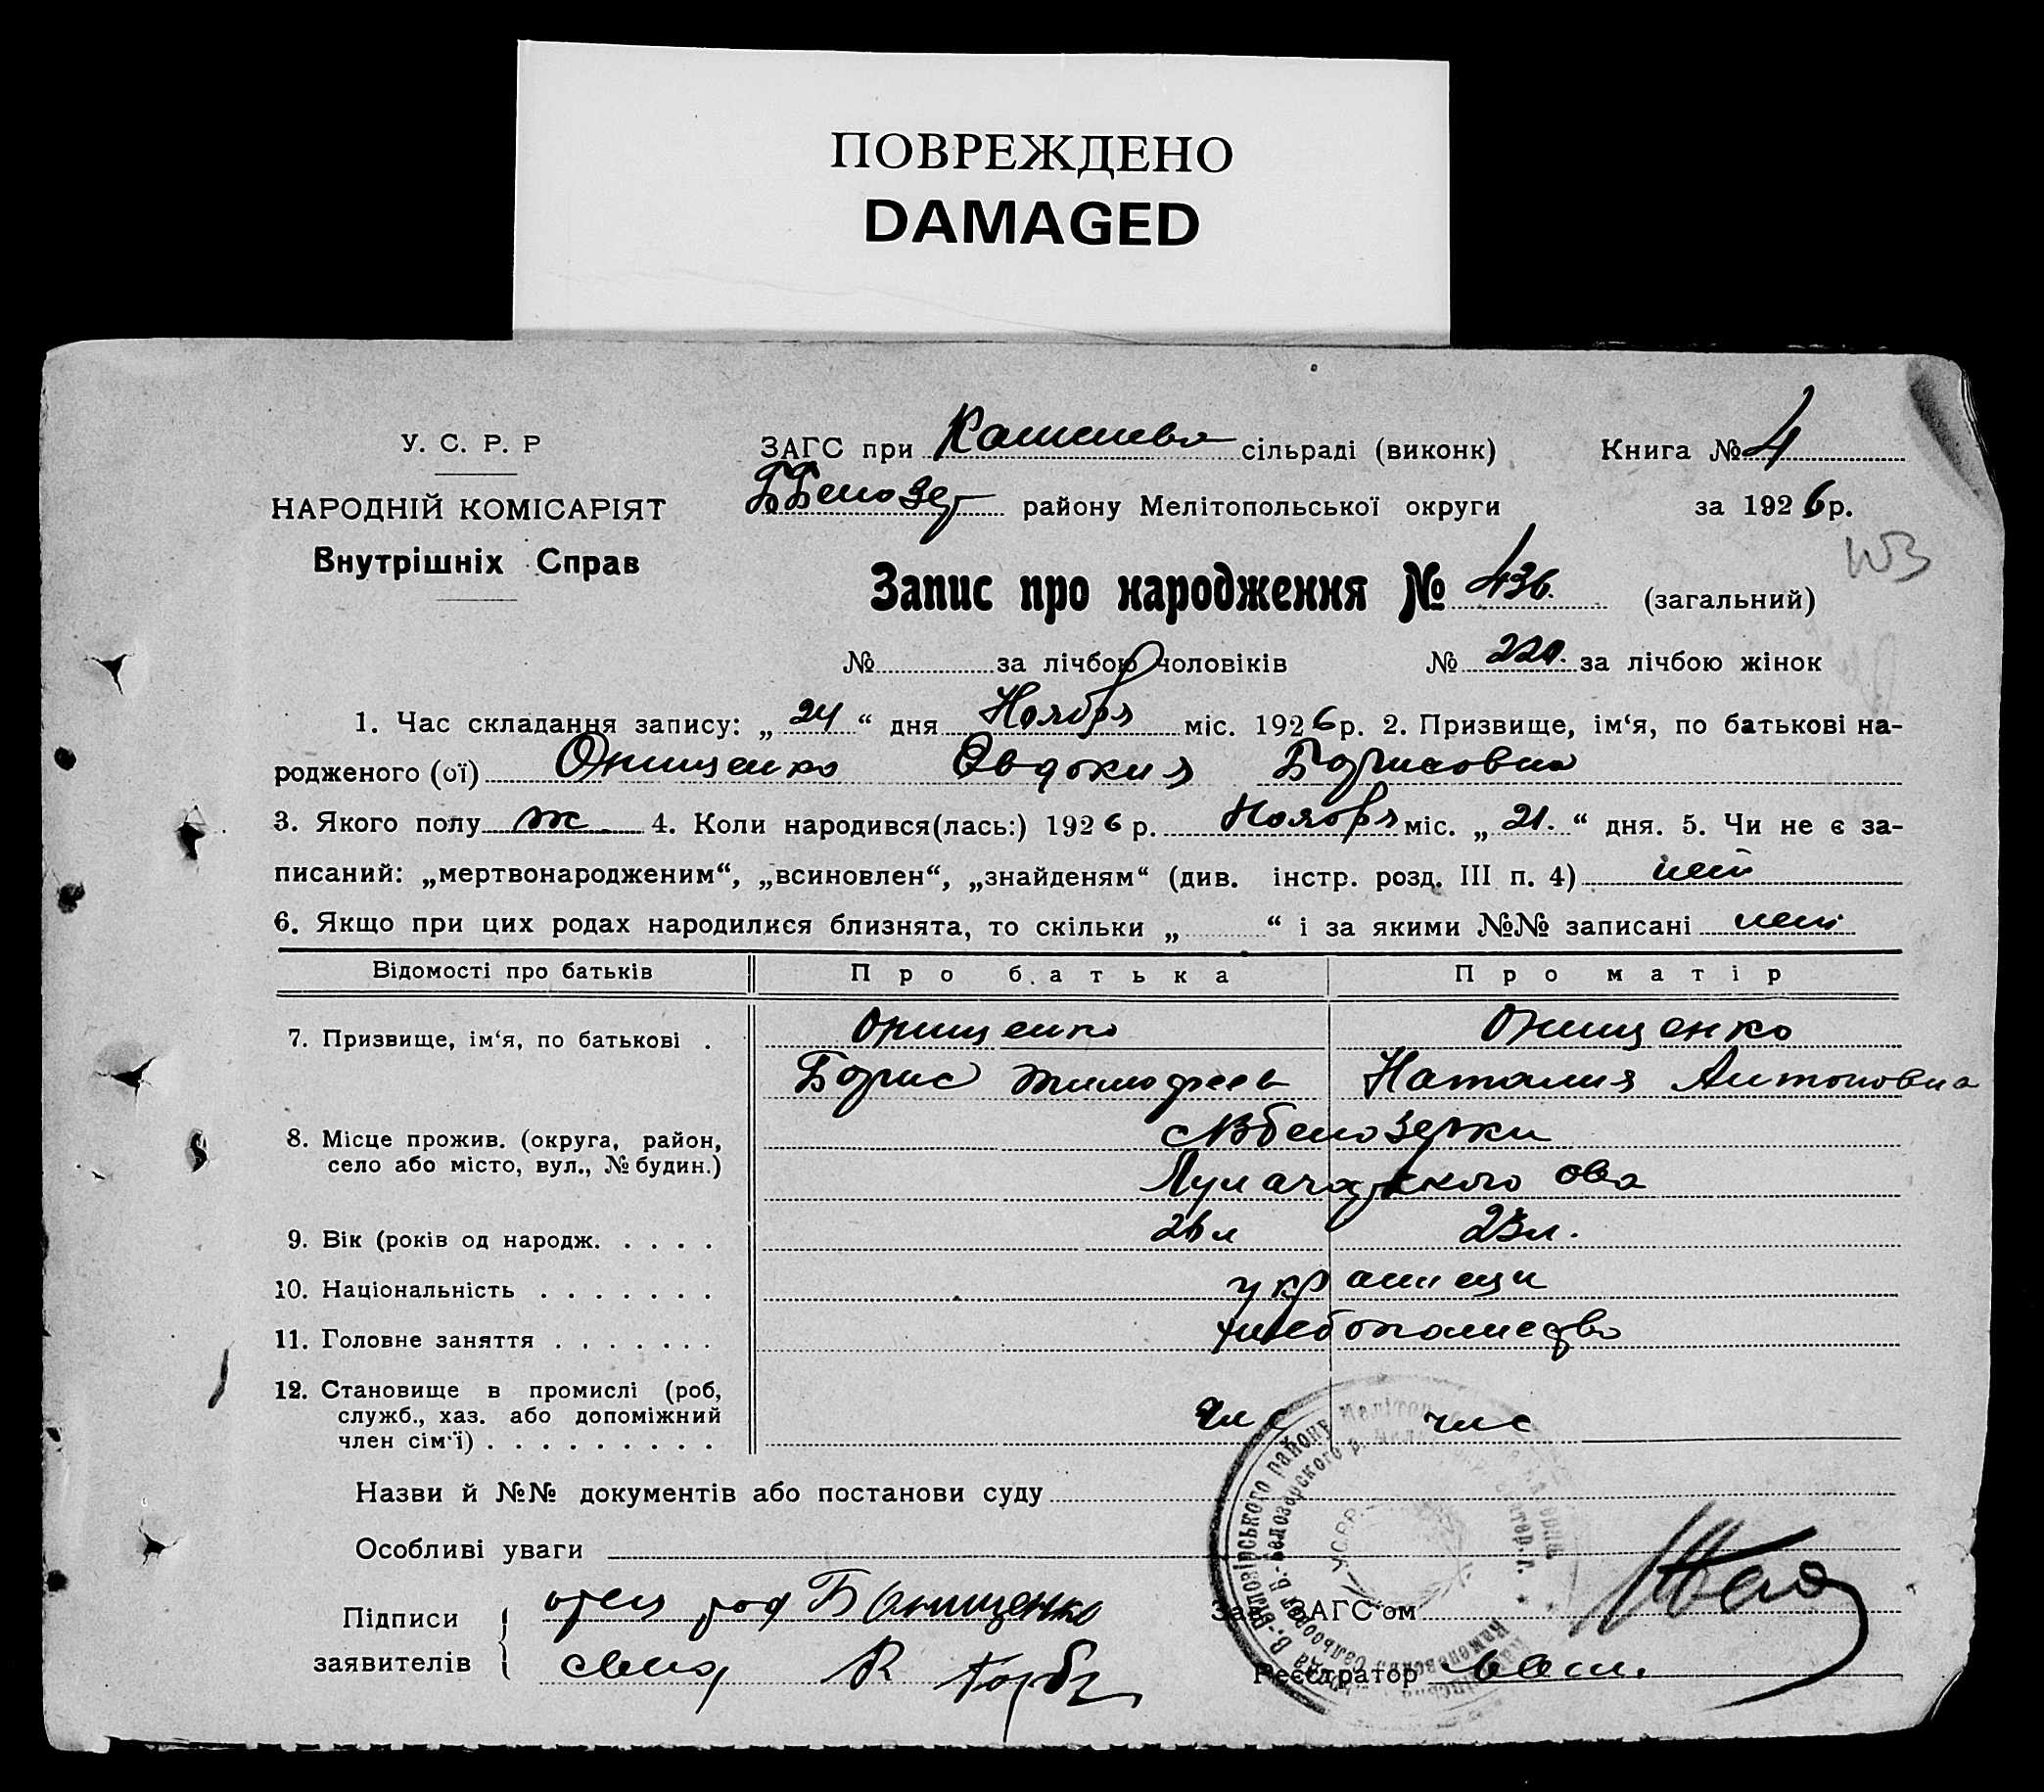 ПОВРЕЖДЕНО
DAMAGED
У. С. Р. Р
НАРОДНІЙ КОМІСАРІЯТ
Внутрішніх Справ
ЗАГС при сільраді (виконк)
Книга № 4
району Мелітопольської округи
за 1926 р.
Запис про народження № 436. (загальний)
№ за лічбою чоловіків № за лічбою жінок
1. Час складання запису: „ 24 “ дня Ноября міс. 1926 р. 2. Призвище, ім‘я, по батькові на-
родженого (ої) Онищенко Евдокия Борисовна
3. Якого полу ж 4. Коли народився(лась:) 1926 р. Ноября міс. „ 21. “ дня. 5. Чи не є за-
писаний: „мертвонародженим“, „всиновлен“, „знайденям“ (див. інстр. розд. III п. 4) нет
6. Якщо при цих родах народилися близнята, то скільки „ “ і за якими №№ записані нет
Відомості про батьків Про батька Про матір
7. Призвище, ім‘я, по батькові . Онищенко Онищенко
Борис Тимофеев Наталия Антоновна
8. Місце прожив. (округа, район,
село або місто, вул., № будин.)
9. Вік (років од народж. . . . . 26 л 23 л.
10. Національність . . . . . . . украинцы
11. Головне заняття . . . . . . . хлебопашество
12. Становище в промислі (роб,
служб., хаз. або допоміжний
член сім‘ї) . . . . . . . . . члс члс
Назви й №№ документів або постанови суду
Особливі уваги
Підписи
заявителів
отец Б Онищенко
свид
Зав. ЗАГС‘ом
Реєстратор